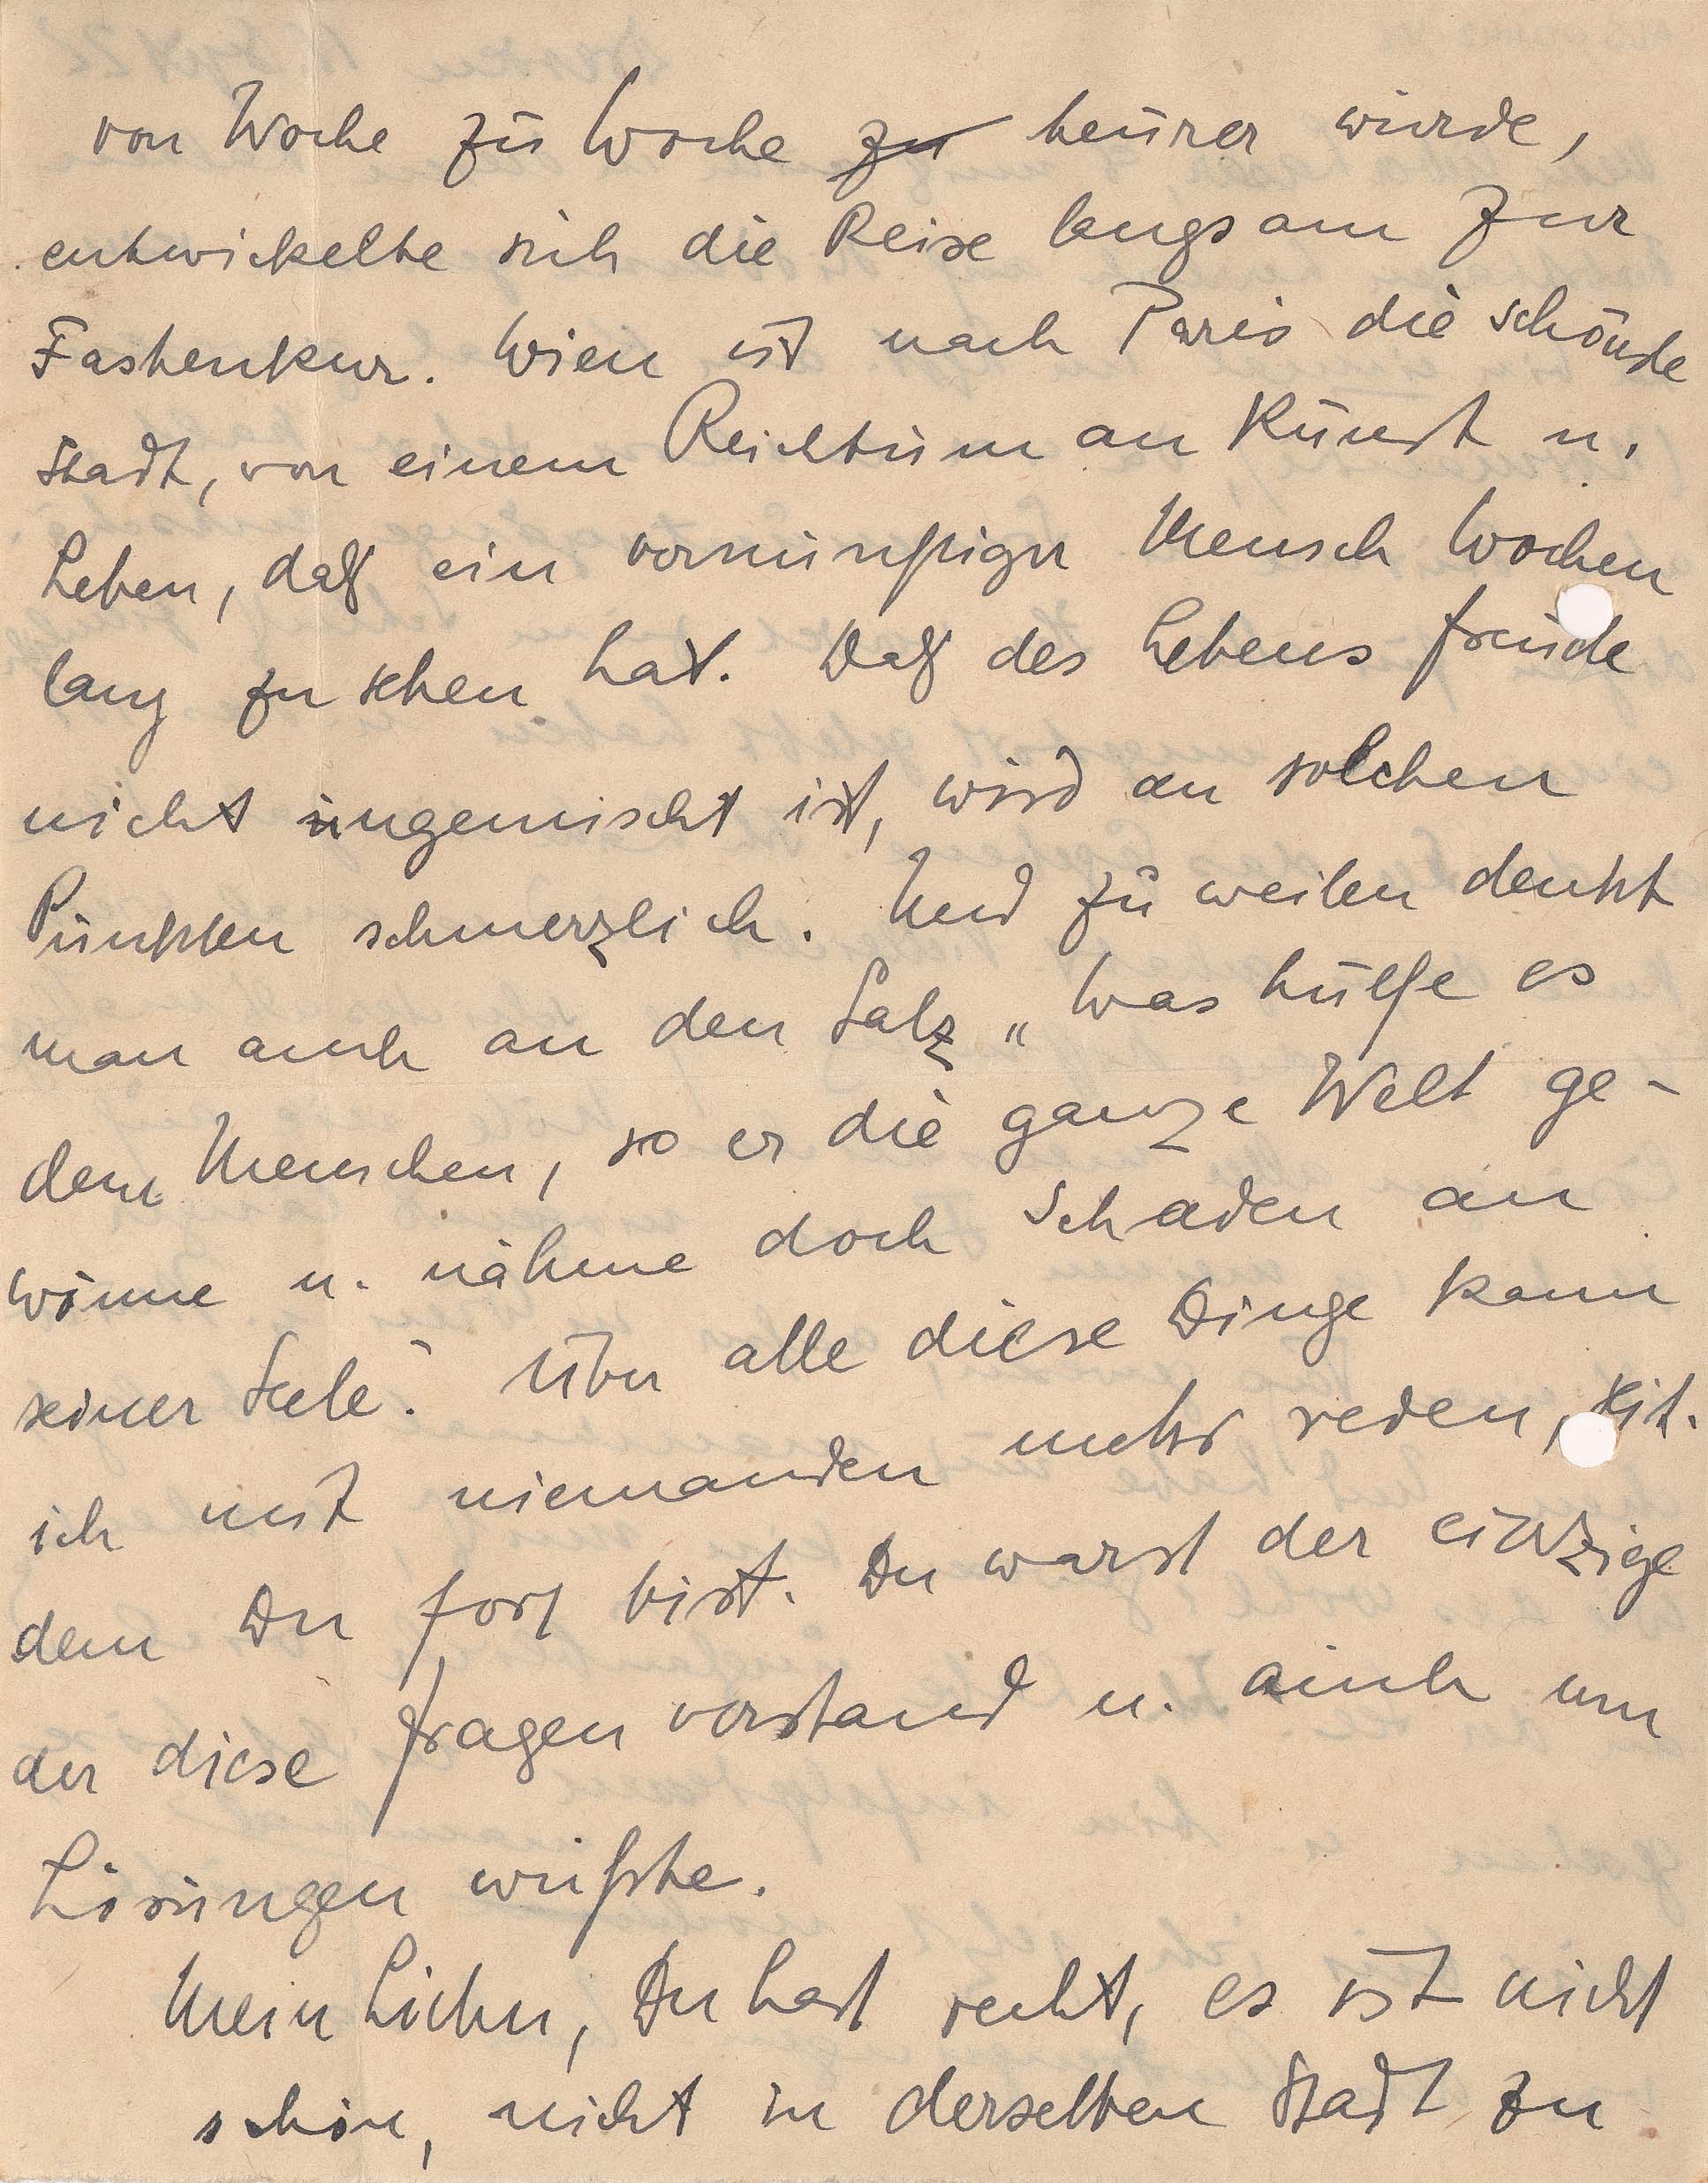 von Woche zu Woche zu teurer wurde,
entwickelte sich die Reise langsam zur
Fastenkur. Wien ist nach Paris die schönste
Stadt, von einem Reichtum an Kunst u.
Leben, daß ein vernünftiger Mensch Wochen
lang zu sehen hat. Daß des Lebens Freude
nicht ungemischt ist, wird an solchen
Punkten schmerzlich. Und zuweilen denkt
man auch an den Satz „Was hülfe es
dem Menschen, so er die ganze Welt ge-
wönne u. nähme doch Schaden an
seiner Seele." Über alle diese Dinge kann
ich mit niemanden mehr reden, seit-
dem Du fort bist. Du warst der einzige
der diese Fragen verstand u. auch um
Lösungen wußte.
Mein Lieber, Du hast recht, es ist nicht
schön, nicht in derselben Stadt zu